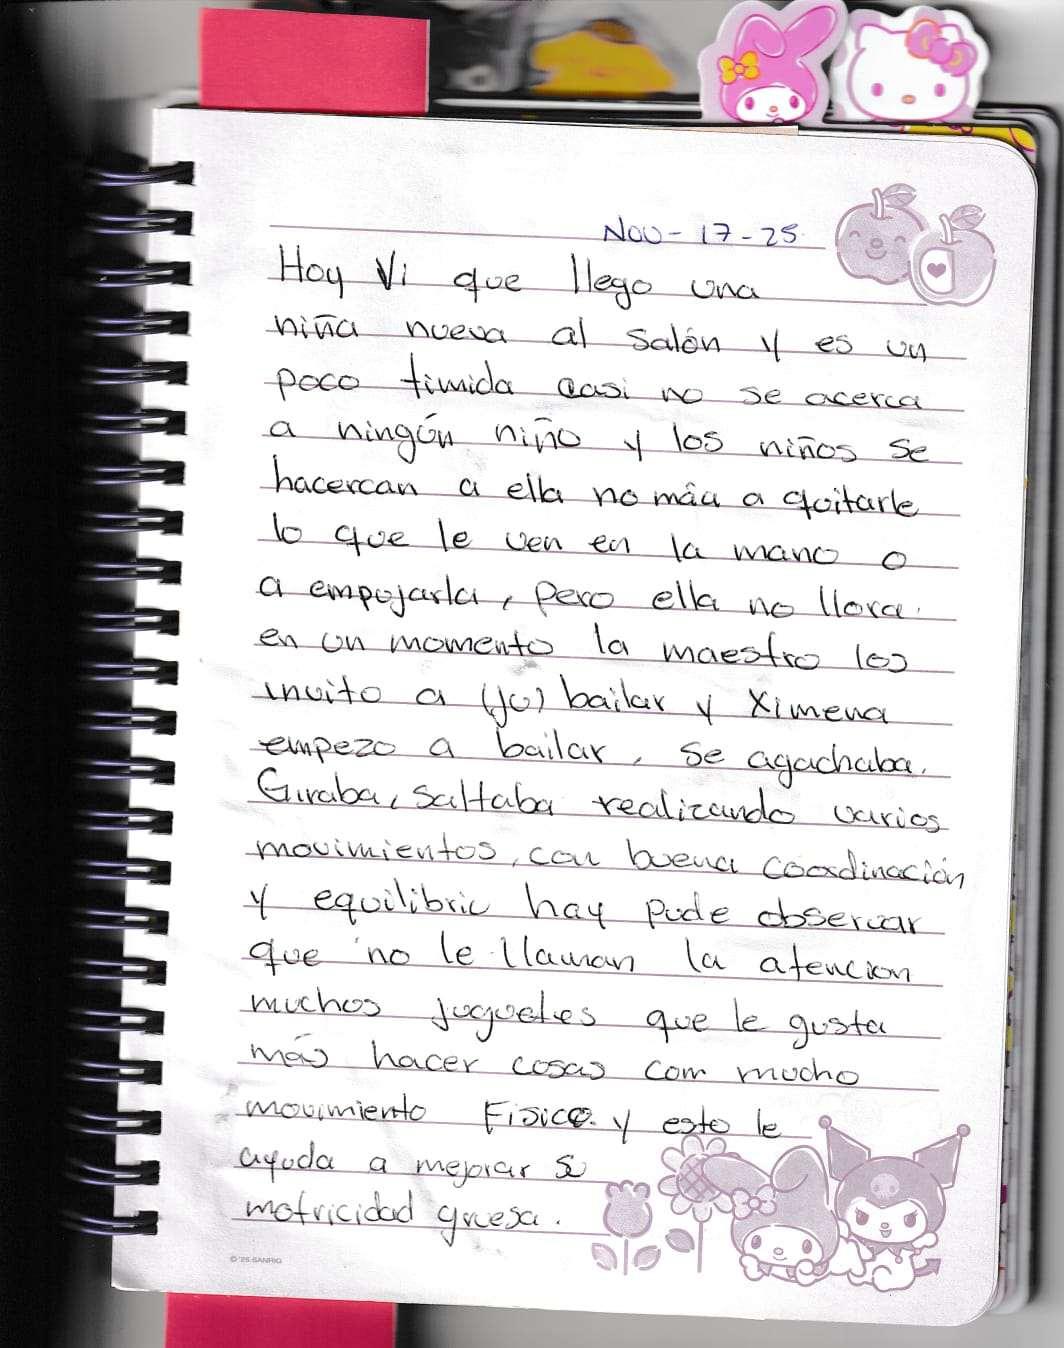 Nov-17-25
Hoy Vi que llego una
niña nueva al salón y es un
poco timida casi no se acerca
a ningún niño y los niños se
hacercan a ella no máa a quitarle
lo que le ven en la mano o
a empujarla, pero ella no llora.
en un momento la maestro los
invito a (ju) bailar y Ximena
empezo a bailar, se agachaba.
Giraba, saltaba realizando varios
movimientos, con buena coordinación
y equilibrio hay pude observar
que no le llaman la atencion
muchos juguetes que le gusta
más hacer cosas com mucho
movimiento Fisico. y esto le
ayuda a mejorar su
motricidad gruesa.
© '25 SANRIO